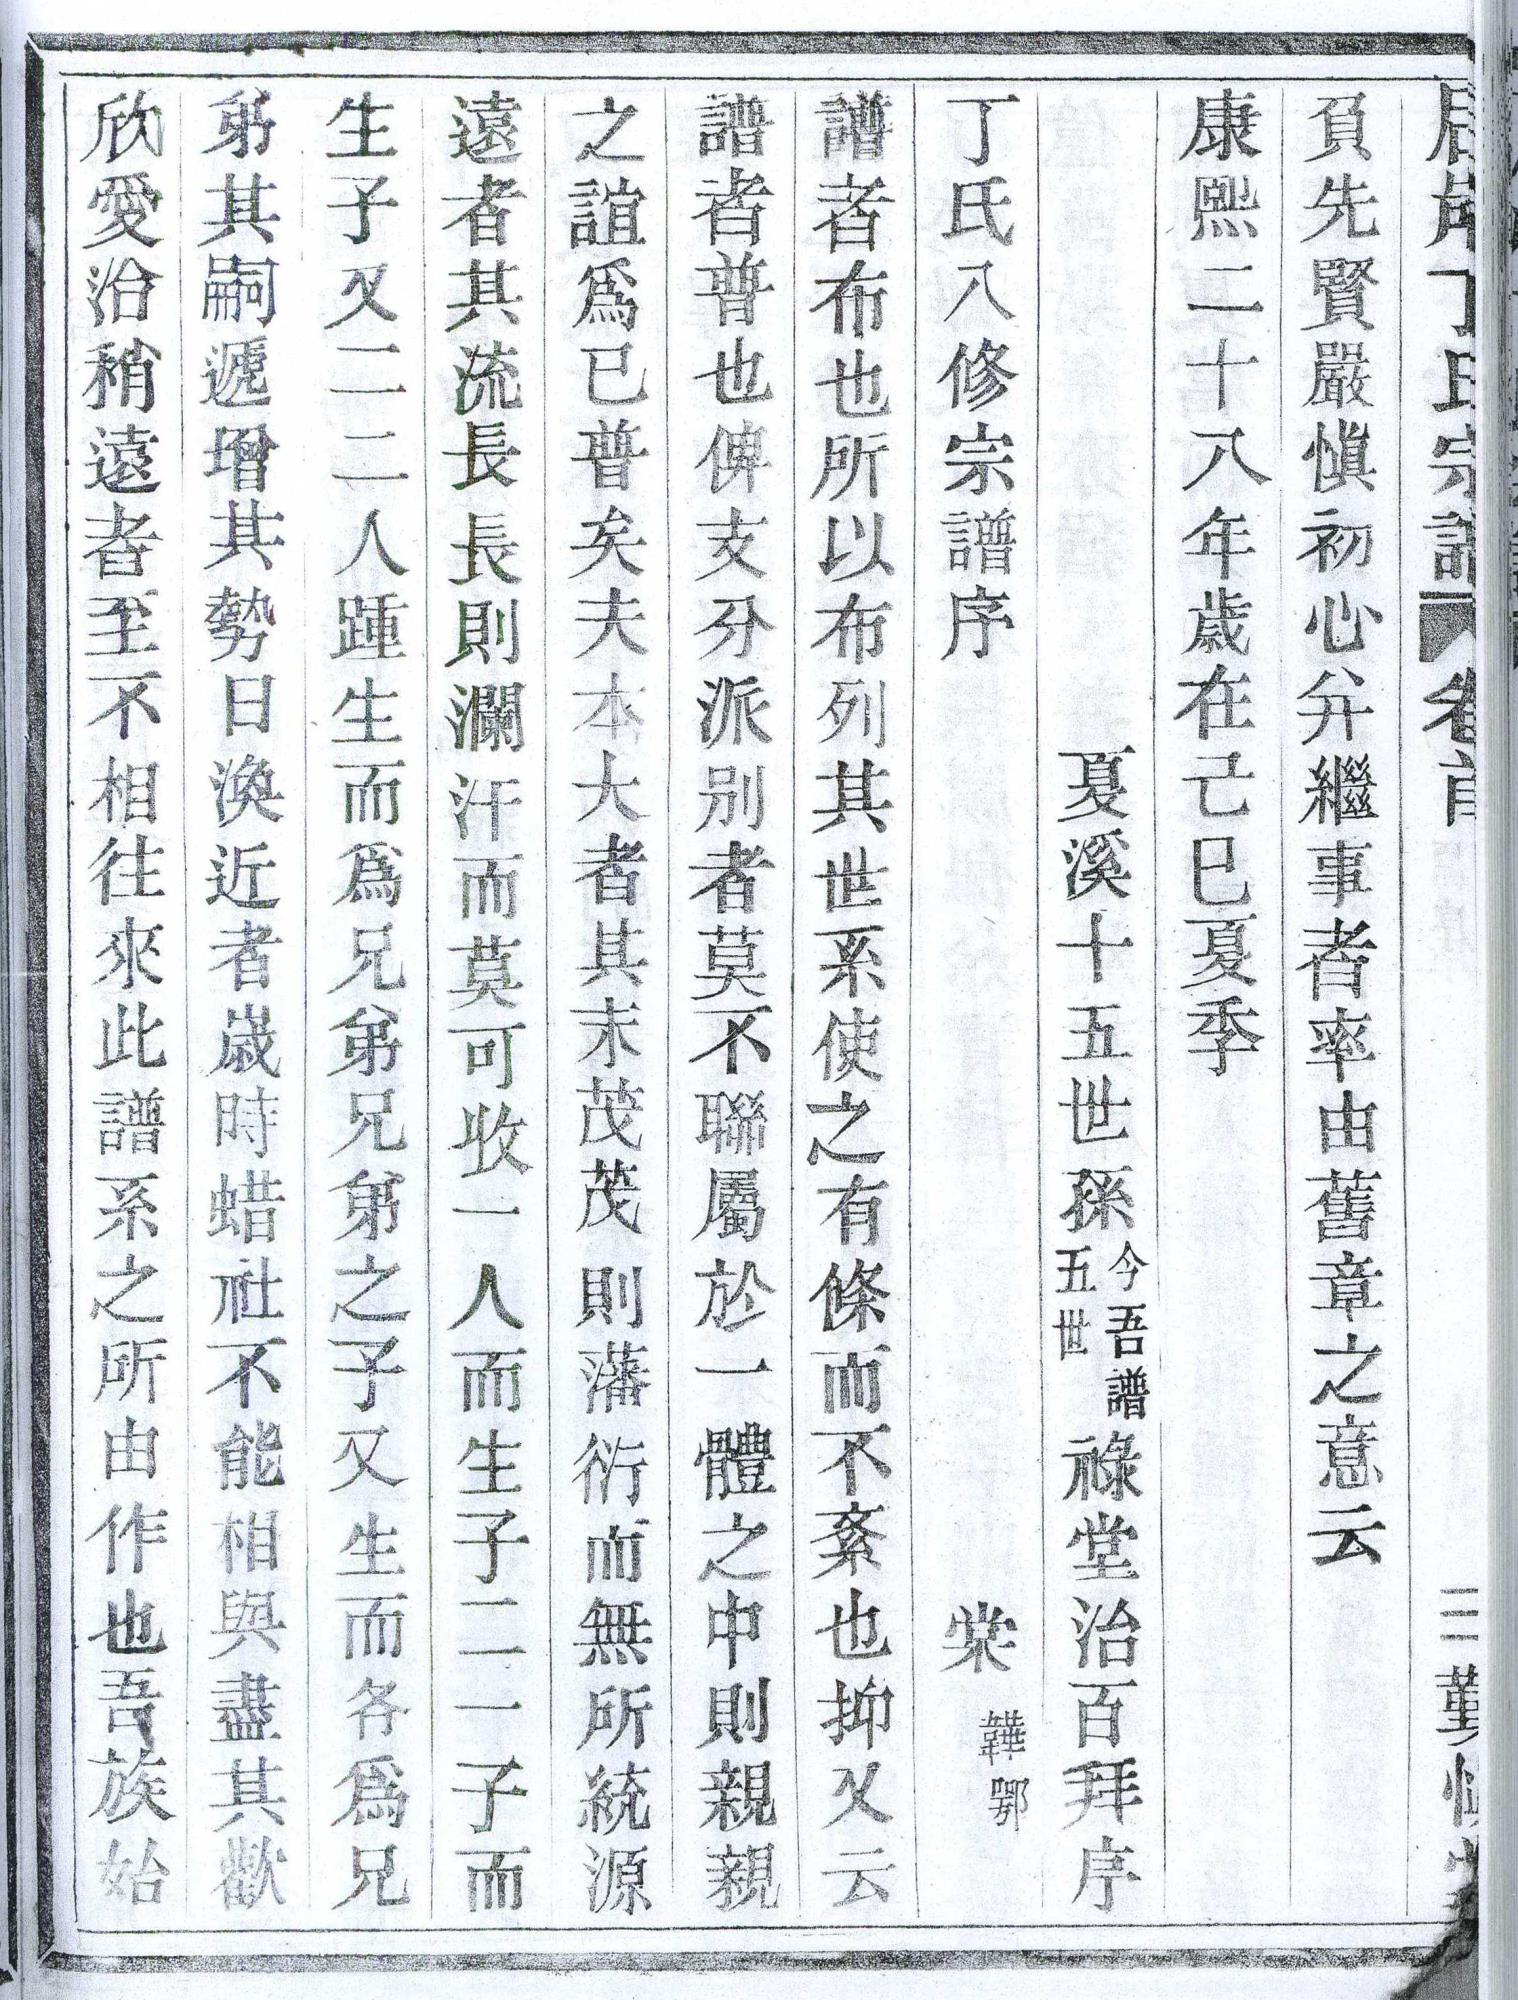 丁氏宗譜 卷首 三
負先賢嚴愼初心弁繼事者率由舊章之意云
康熙二十八年歲在己巳夏季
夏溪十五世孫今吾譜五世祿堂治百拜序
丁氏八修宗譜序 棠 韡鄂
譜者布也所以布列其世系使之有條而不紊也抑又云
譜者普也俾支分派別者莫不聯屬於一體之中則親親
之誼爲已普矣夫本大者其末茂茂則藩衍而無所統源
遠者其流長長則瀾汗而莫可收一人而生子二一子而
生子又二二人踵生而爲兄弟兄弟之子又生而各爲兄
弟其嗣遞增其勢日渙近者歲時蜡社不能相與盡其歡
欣愛洽稍遠者至不相往來此譜系之所由作也吾族始